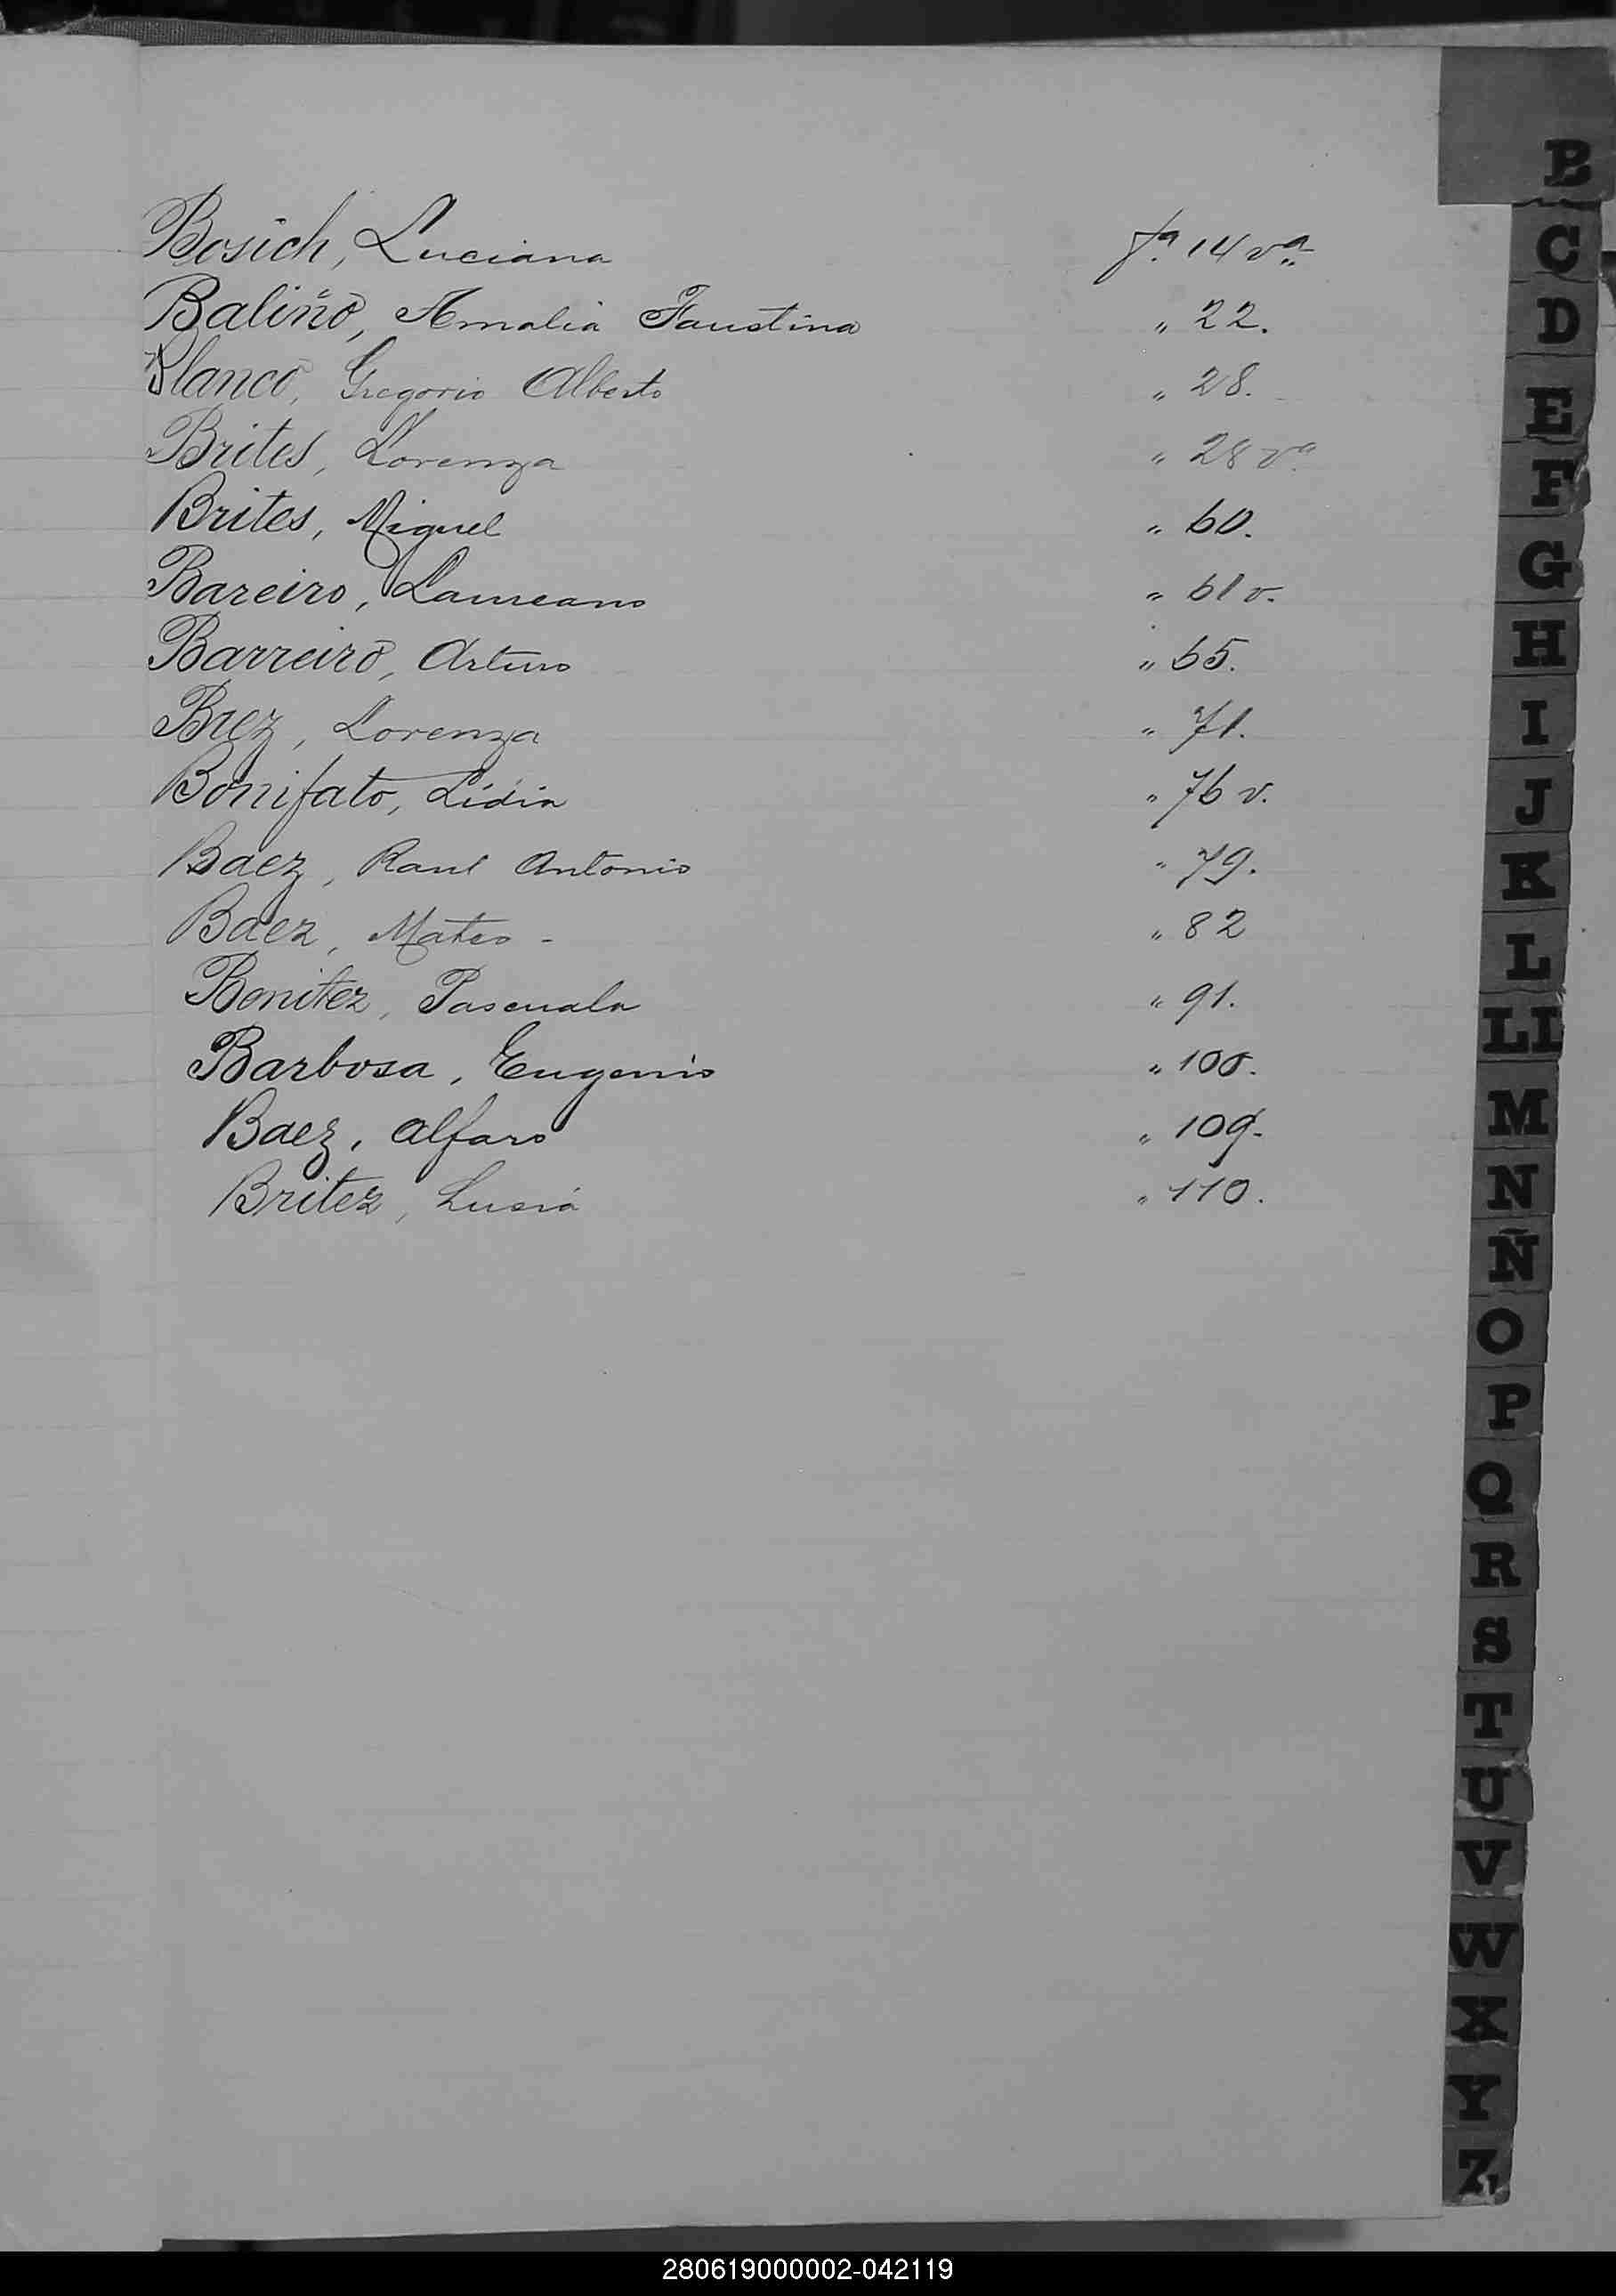 Bosich, Luciana fª 14 vª
Baliño, Amalia Faustina " 22.
Blanco, Gregorio Alberto " 28.
Brites, Lorenza " 28 vª
Brites, Miguel " 60.
Bareiro, Laureano " 61 v.
Barreiro, Arturo " 65.
Brez, Lorenza " 71.
Bonifato, Lidia " 76 v.
Baez, Raul Antonio " 79.
Baez, Mateo - " 82
Benitez, Pascuala " 91.
Barbosa, Eugenio " 100.
Baez, Alfaro " 109.
Britez, Lucia " 110.
B
C
D
E
F
G
H
I
J
K
L
LL
M
N
Ñ
O
P
Q
R
S
T
U
V
W
X
Y
Z
280619000002-042119